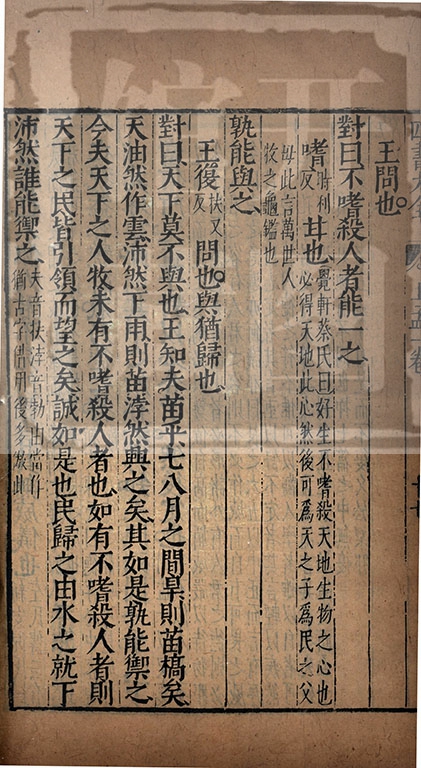 王問也
對曰不嗜殺人者能一之
嗜時利反甘也覺軒蔡氏曰好生不嗜殺天地生物之心也必得天地此心然後可爲天之子爲民之父
母此言萬世人牧之龜鑑也
孰能與之
王復扶又反問也與猶歸也
對曰天下莫不與也王知夫苗乎七八月之間旱則苗槁矣
天油然作雲沛然下雨則苗浡然興之矣其如是孰能禦之
今夫天下之人牧未有不嗜殺人者也如有不嗜殺人者則
天下之民皆引領而望之矣誠如是也民歸之由水之就下
沛然誰能禦之夫音扶浡音勃由當作猶古字借用後多倣此